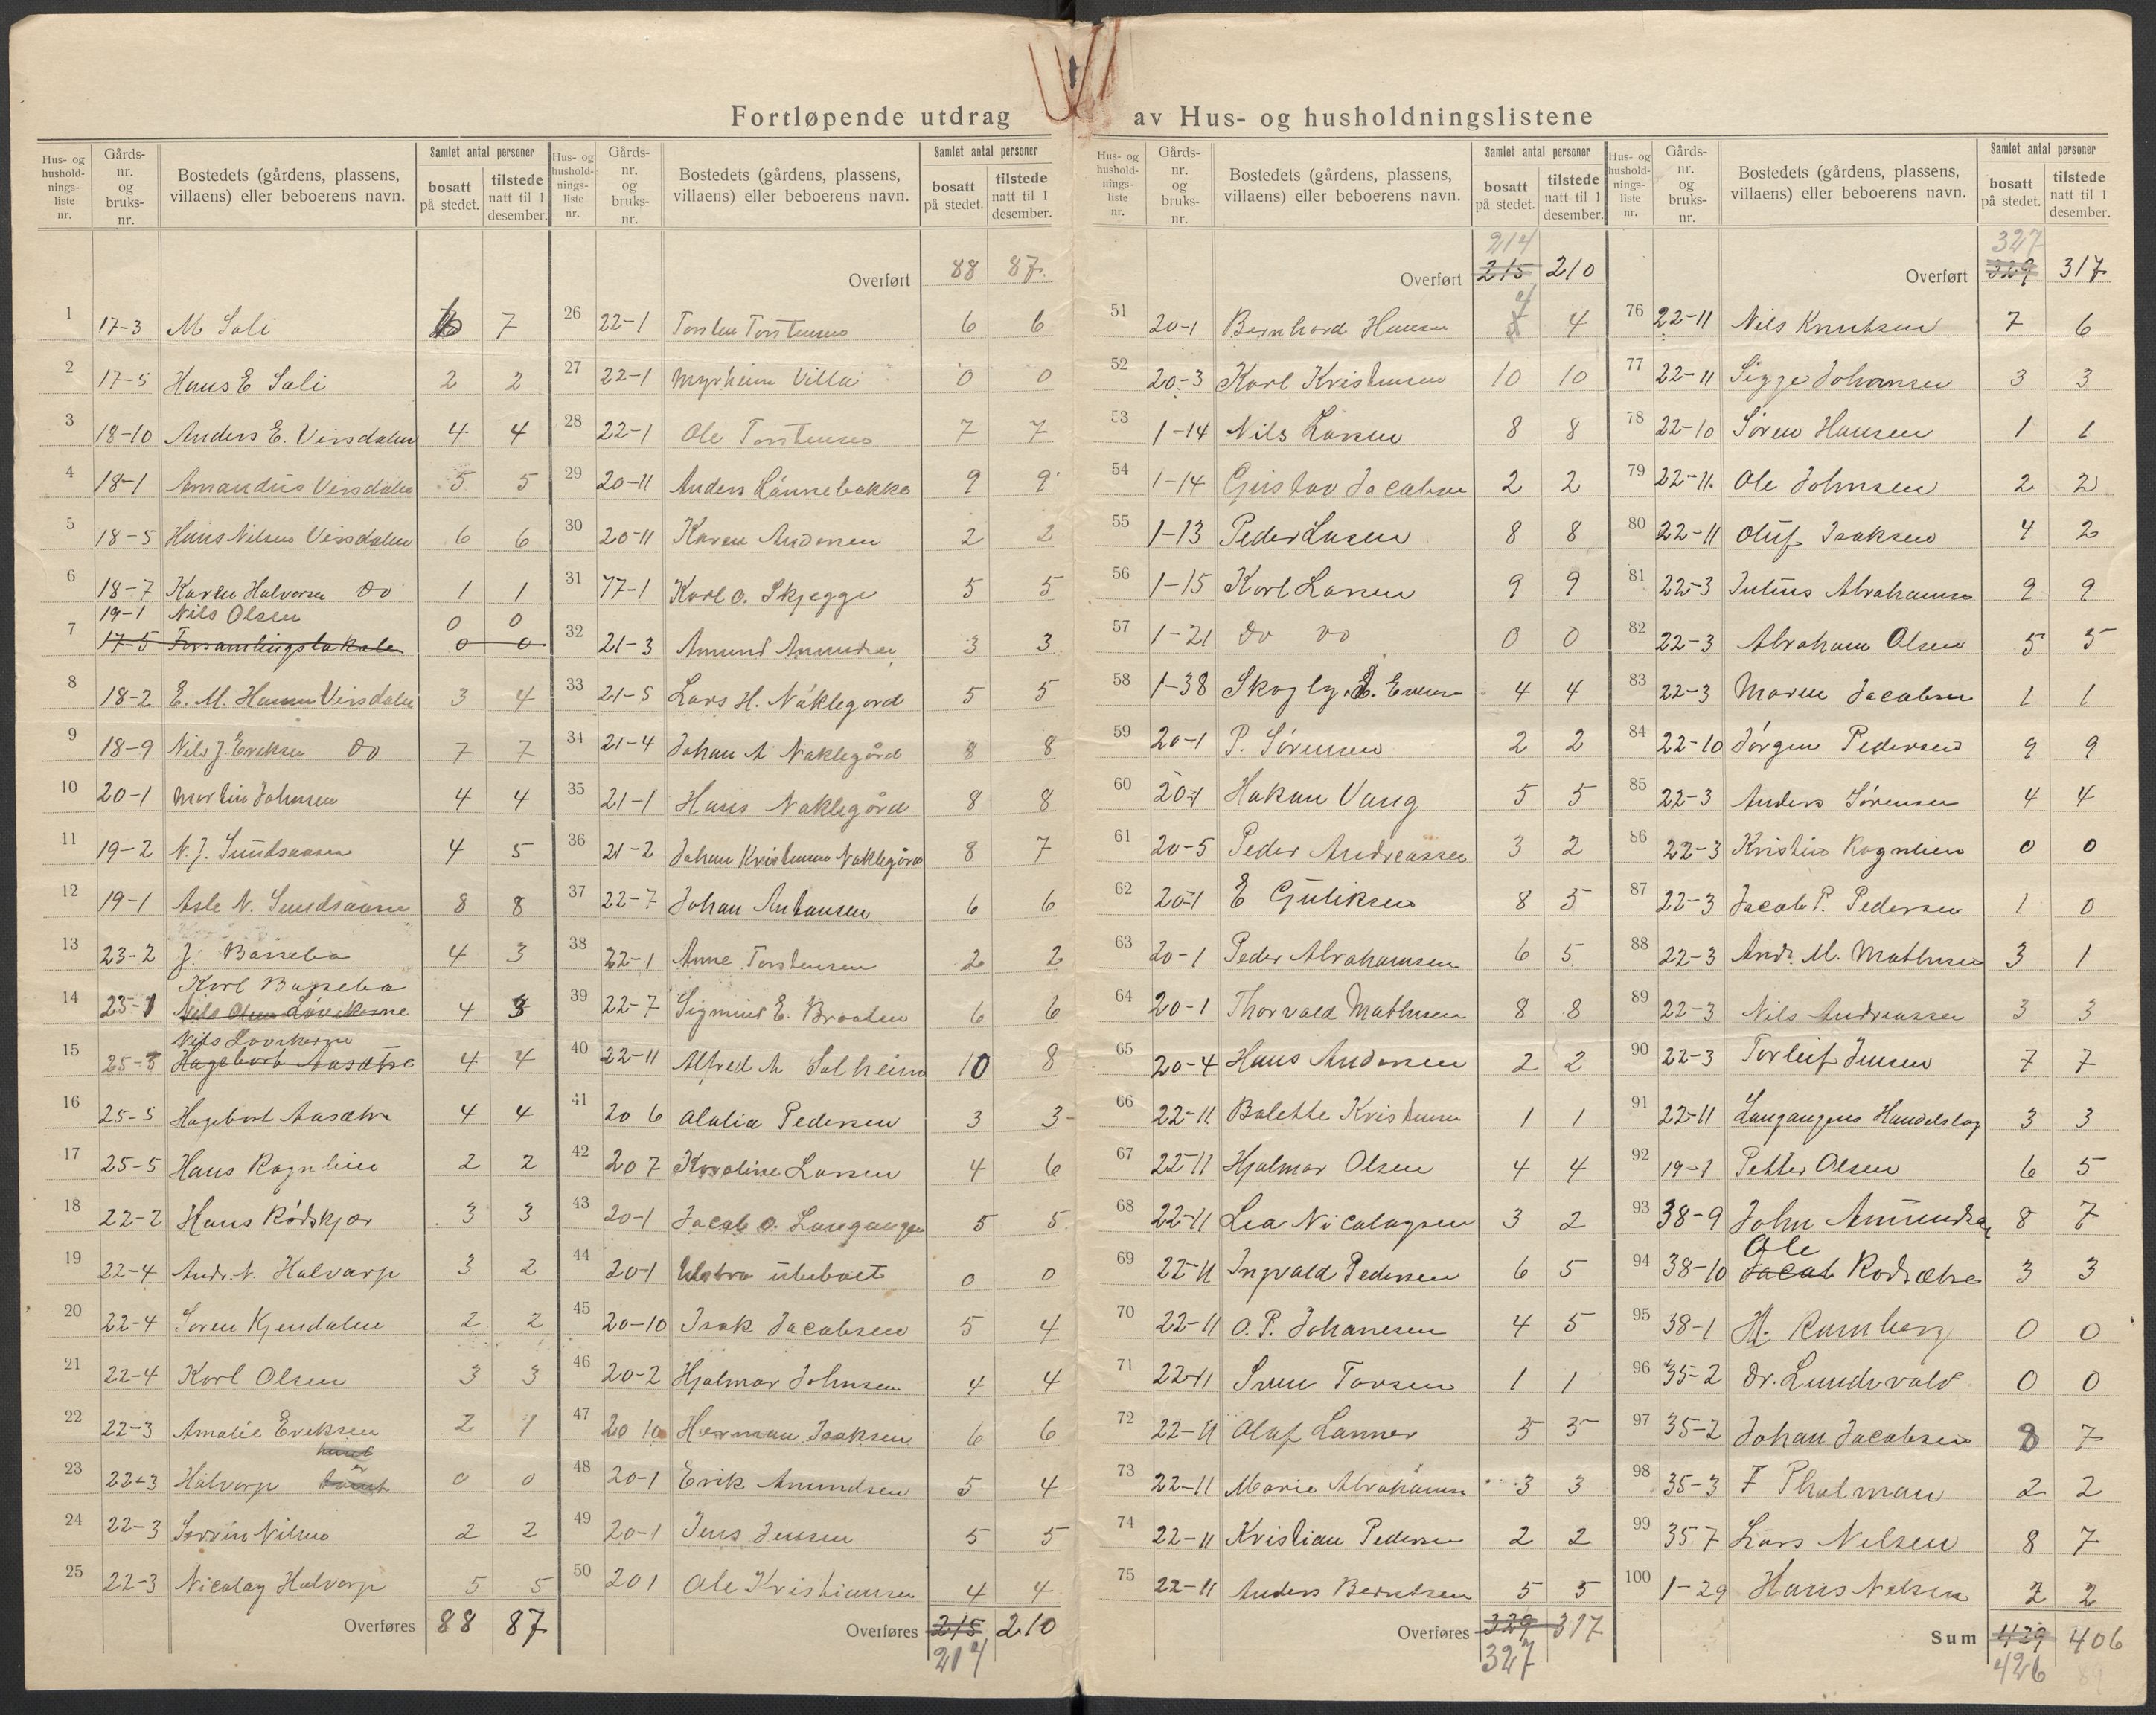 Fortløpende utdrag av Hus- og husholdningslistene
Hus- og husholdningsliste nr. | Gårds- nr. og bruks- nr. | Bostedets (gårdens, plassens, villaens) eller beboerens navn. | Samlet antal personer bosatt på stedet. | tilstede natt til 1 desember.
1 17-3 M Soli 7
2 17-5 Hans E Soli 2 2
3 18-10 Anders E. Virsdalen 4 4
4 18-1 Amandus Virsdalen 5 5
5 18-5 Hans Nilsens Virsdalen 6 6
6 18-7 Karen Halvorsen Do 1 1
19-1 Nils Olsen 0 0
7 17-5 Forsamlingslokale 0 0
8 18-2 E. M. Hansen Virsdalen 3 4
9 18-9 Nils J. Eriksen Do 7 7
10 20-1 Martin Johnsen 4 4
11 19-2 N. J. Sundsaasen 4 5
12 19-1 Asle N. Sundsaasen 8 8
13 23-2 J. Basseba 4 3
Karl Basseba
14 23-1 Nils Olsen Løvekerne 4 3
Nils Lovekerne
15 25-5 Hagebart Aasætre 4 4
16 25-5 Hagebart Aasætre 4 4
17 25-5 Hans Rognlien 2 2
18 22-2 Hans Rødskjær 3 3
19 22-4 Andr. N. Halvarp 3 2
20 22-4 Soren Kjendalen 2 2
21 22-4 Karl Olsen 3 3
22 22-3 Amalie Eriksen 2 1
23 22-3 Halvarp 0 0
24 22-3 Nilsen 2 2
25 22-3 Nicolay Halvarp 5 5
Overføres 88 87
Overført 88 87
26 22-1 Torsten Torstensen 6 6
27 22-1 Myrheim Villa 0 0
28 22-1 Ole Torstensen 7 7
29 20-11 Anders Lønnebakke 9 9
30 20-11 Karen Andersen 2 2
31 77-1 Karl O. Skjegge 5 5
32 21-3 Amund Amundsen 3 3
33 21-5 Lars H. Naklegord 5 5
34 21-4 Johan A Naklegård 8 8
35 21-1 Hans Naklegård 8 8
36 21-2 Johan Kristensen Naklegård 8 7
37 22-7 Johan Antonsen 6 6
38 22-1 Anne Torstensen 2 2
39 22-7 Sigmund E. Braaten 6 6
40 22-11 Alfred A Solheim 10 8
41 20 6 Olalia Pedersen 3 3
42 20 7 Karoline Larsen 4 6
43 20-1 Jacob O. Langangen 5 5
44 20-1 ubeboet 0 0
45 20-10 Isak Jacobsen 5 4
46 20-2 Hjalmar Johnsen 4 4
47 20 10 Herman Isaksen 6 6
48 20-1 Erik Amundsen 5 4
49 20-1 Jens Jensen 5 5
50 20 1 Ole Kristiansen 4 4
Overføres 215 210
214
214
Overført 215 210
51 20-1 Bernhard Hansen 4 4
52 20-3 Karl Kristensen 10 10
53 1-14 Nils Larsen 8 8
54 1-14 Gustav Jacobsen 2 2
55 1-13 Peder Larsen 8 8
56 1-15 Karl Larsen 9 9
57 1-21 Do Do 0 0
58 1-38 Skogly. E. Evensen 4 4
59 20-1 P. Sørensen 2 2
60 20-1 Hakan Vang 5 5
61 20-5 Peder Andreassen 3 2
62 20-1 E Guliksen 8 5
63 20-1 Peder Abrahamsen 6 5
64 20-1 Thorvald Mathisen 8 8
65 20-4 Hans Andersen 2 2
66 22-11 Bolette Kristensen 1 1
67 22-11 Hjalmar Olsen 4 4
68 22-11 Lea Nicolaysen 3 2
69 22-11 Ingvald Pedersen 6 5
70 22-11 O. P. Johanesen 4 5
71 22-11 Sven Torsen 1 1
72 22-11 Olaf Lanner 5 5
73 22-11 Marie Abrahamsen 3 3
74 22-11 Kristian Pedersen 2 2
75 22-11 Anders Berntsen 5 5
Overføres 329 317
327
327
Overført 329 317
76 22-11 Nils Knutsen 7 6
77 22-11 Sigge Johansen 3 3
78 22-10 Søren Hansen 1 1
79 22-11. Ole Johnsen 2 2
80 22-11 Oluf Isaksen 4 2
81 22-3 Julius Abrahamsen 9 9
82 22-3 Abraham Olsen 5 5
83 22-3 Maren Jacobsen 1 1
84 22-10 Jørgen Pedersen 9 9
85 22-3 Anders Sørensen 4 4
86 22-3 Kristin Rognlien 0 0
87 22-3 Jacob P. Pedersen 1 0
88 22-3 Andr. M. Mathisen 3 1
89 22-3 Nils Andreassen 3 3
90 22-3 Torleif Jensen 7 7
91 22-11 Langangens Handelslag 3 3
92 19-1 Petter Olsen 6 5
93 38-9 John Amundsen 8 7
Ole
94 38-10 Jacob Rodsætre 3 3
95 38-1 H. Ramberg 0 0
96 35-2 Dr. Lundevald 0 0
97 35-2 Johan Jacobsen 8 7
98 35-3 F Thalman 2 2
99 35 7 Lars Nilsen 8 7
100 1-29 Hans Nilsen 2 2
Sum 429 406
426